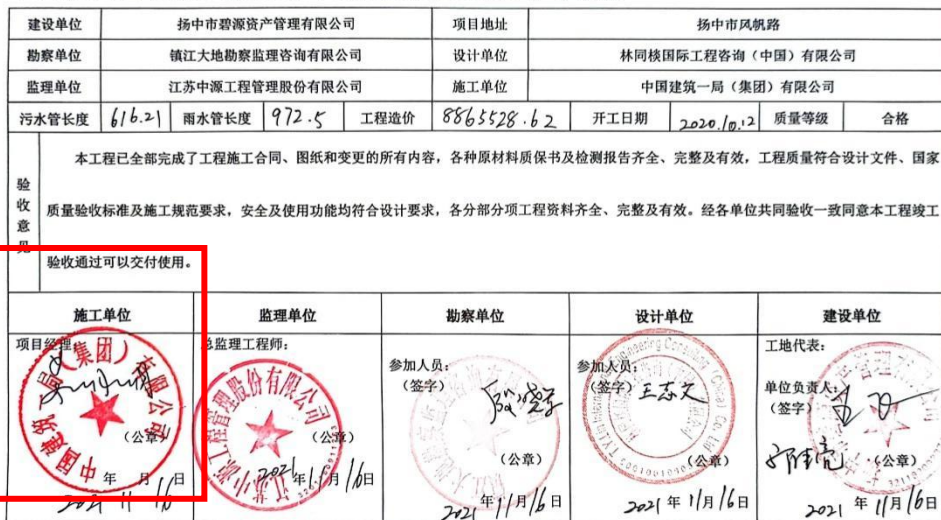 建设单位 扬中市碧源资产管理有限公司 项目地址 扬中市风帆路
勘察单位 镇江大地勘察监理咨询有限公司 设计单位 林同棪国际工程咨询（中国）有限公司
监理单位 江苏中源工程管理股份有限公司 施工单位 中国建筑一局（集团）有限公司
污水管长度 616.21 雨水管长度 972.5 工程造价 8865528.62 开工日期 2020.10.12 质量等级 合格
验收意见
本工程已全部完成了工程施工合同、图纸和变更的所有内容，各种原材料质保书及检测报告齐全、完整及有效，工程质量符合设计文件、国家
质量验收标准及施工规范要求，安全及使用功能均符合设计要求，各分部分项工程资料齐全、完整及有效。经各单位共同验收一致同意本工程竣工
验收通过可以交付使用。
施工单位 监理单位 勘察单位 设计单位 建设单位
项目经理: 总监理工程师: 参加人员: 参加人员: 工地代表:
（签字） （签字） 王志文 单位负责人:
（签字）
（公章） （公章） （公章） （公章） （公章）
2021年11月16日 2021年11月16日 2021年11月16日 2021年11月16日 2021年11月16日
中国建筑一局（集团）有限公司
江苏中源工程管理股份有限公司